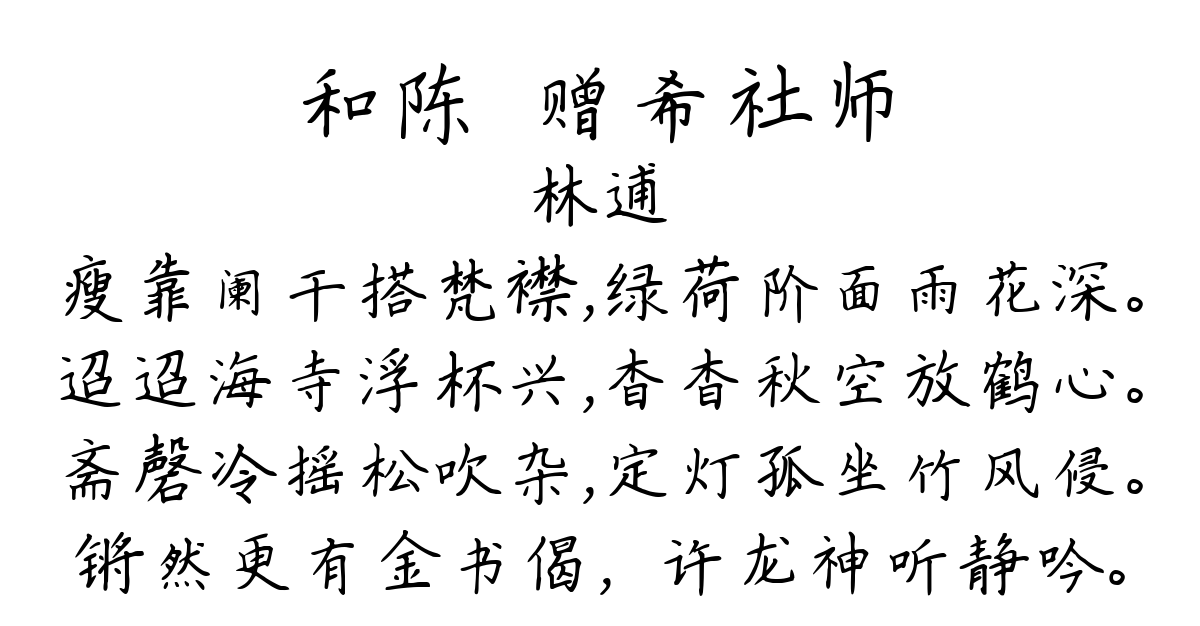 和陈 赠希社师
林逋
瘦靠阑干搭梵襟,绿荷阶面雨花深。
迢迢海寺浮杯兴,杳杳秋空放鹤心。
斋磬冷摇松吹杂,定灯孤坐竹风侵。
锵然更有金书偈，许龙神听静吟。